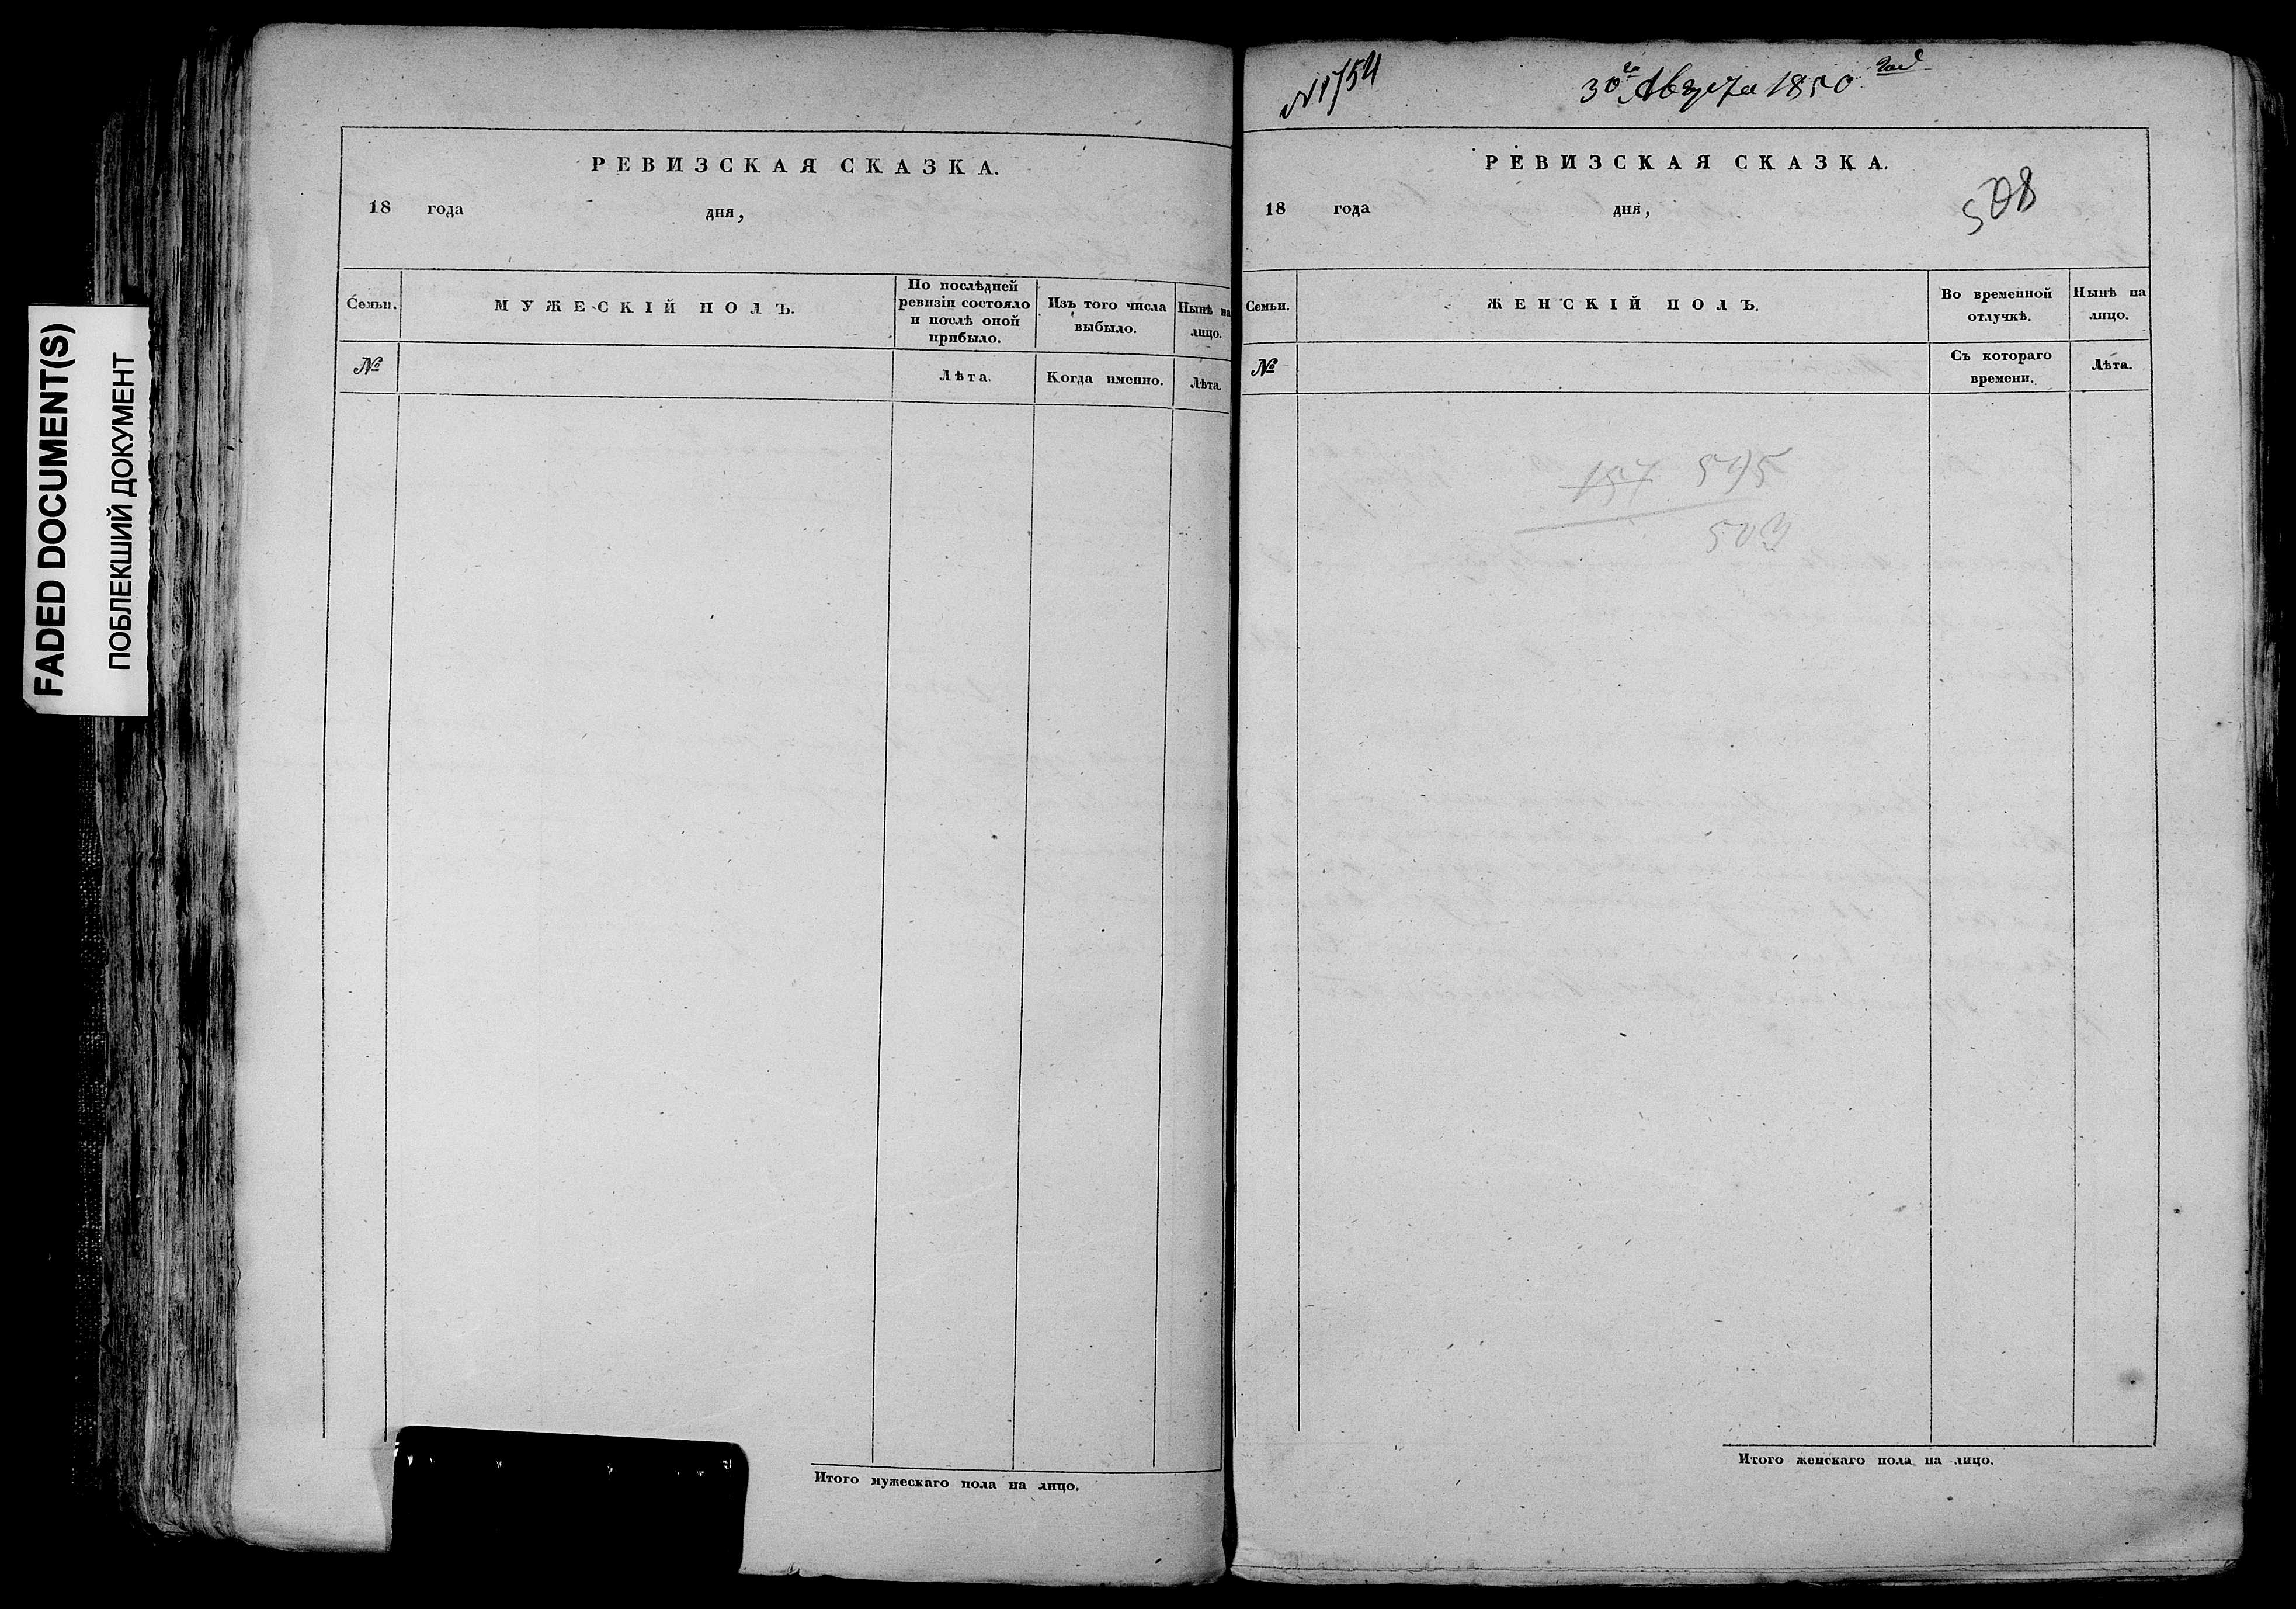 FADED DOCUMENT(S)
ПОБЛЕКШИЙ ДОКУМЕНТ
РЕВИЗСКАЯ СКАЗКА.
18 года дня,
Семьи.
МУЖЕСКІЙ ПОЛЪ.
По послѣдней
ревизіи состояло
и послѣ оной
прибыло.
Изъ того числа
выбыло.
Нынѣ на
лицо.
№
Лѣта.
Когда именно.
Лѣта.
Итого мужескаго пола на лицо.
№ 1754
30го Августа 1850 года
РЕВИЗСКАЯ СКАЗКА.
508
18 года дня,
Семьи.
ЖЕНСКІЙ ПОЛЪ.
Во временной
отлучкѣ.
Нынѣ на
лицо.
№
Съ котораго
времени.
Лѣта.
157 595
503
Итого женскаго пола на лицо.